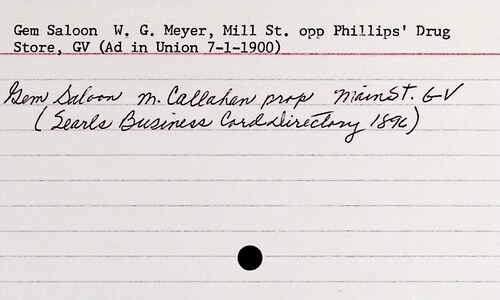 Gem Saloon W. G. Meyer, Mill St. opp Phillips' Drug
Store, GV (Ad in Union 7-1-1900)
Gem Saloon M. Callahan prop Main St. GV
(Searls Business Card Directory 1896)